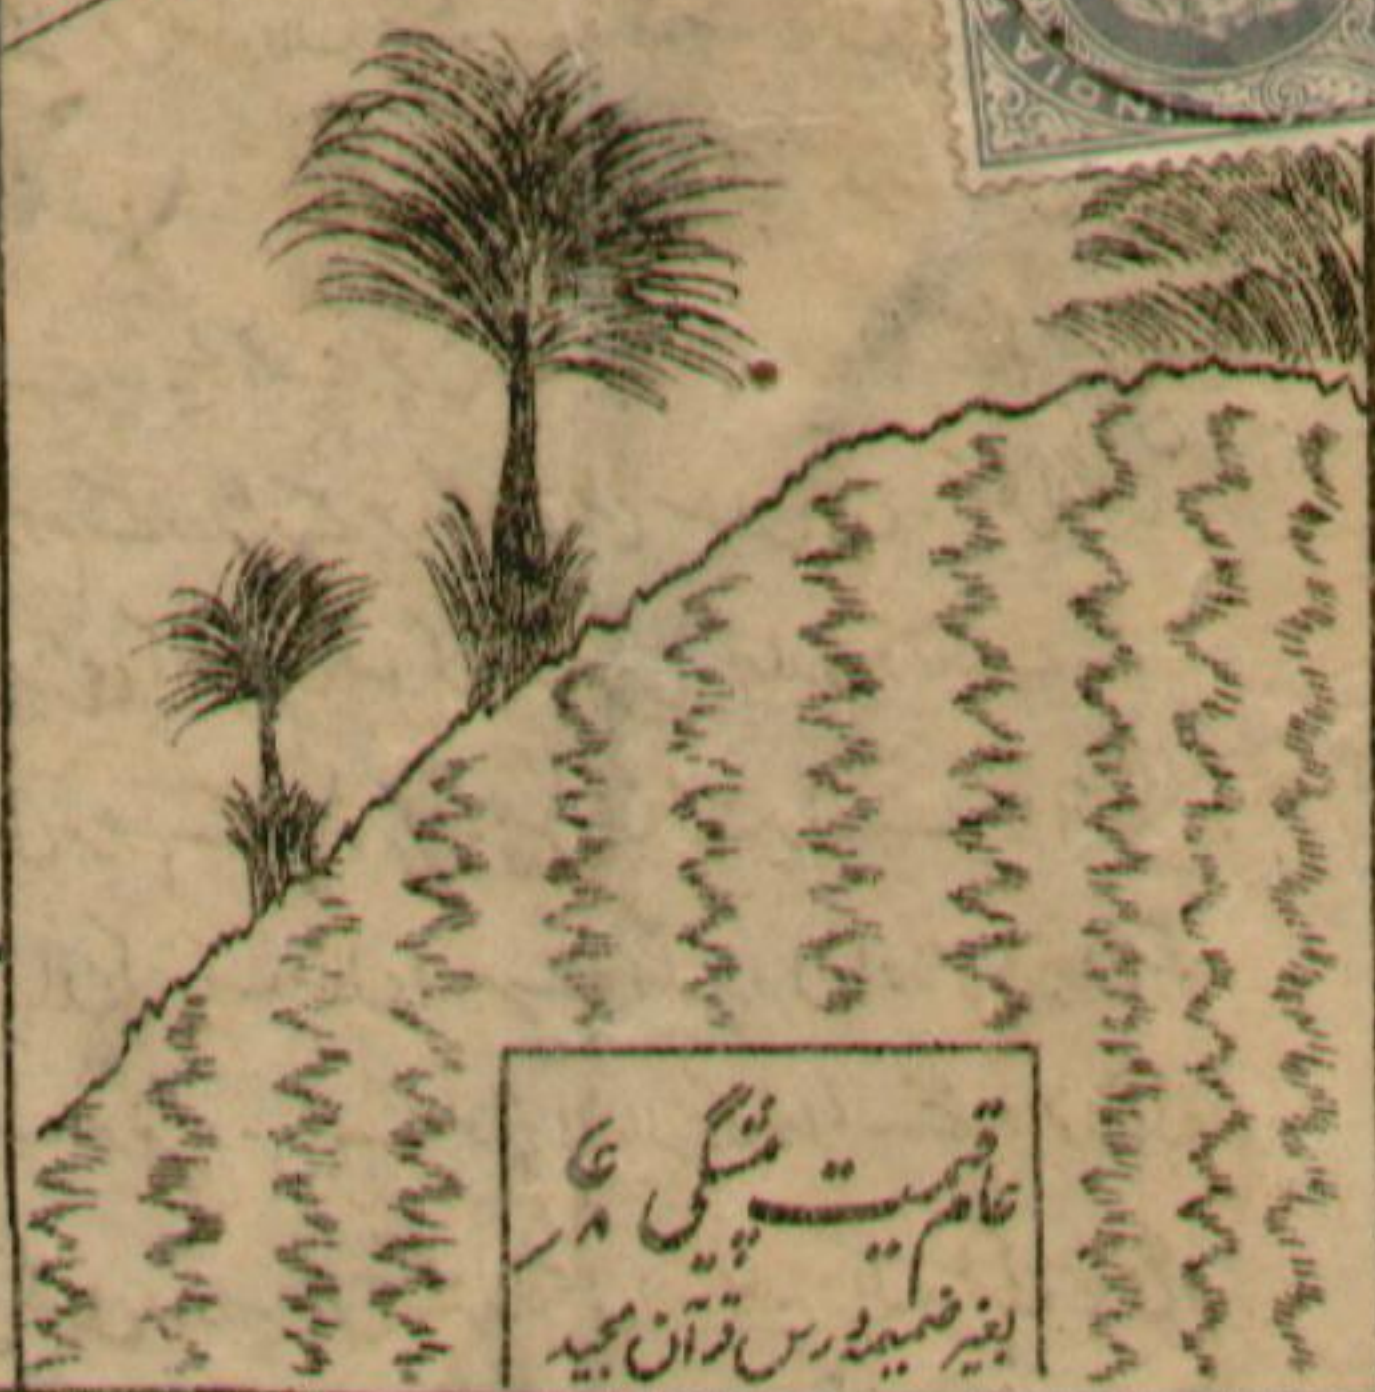 INDIA
عام قیمت پیشگی ۸؍
بغیر ضمیمہ درس قرآن مجید